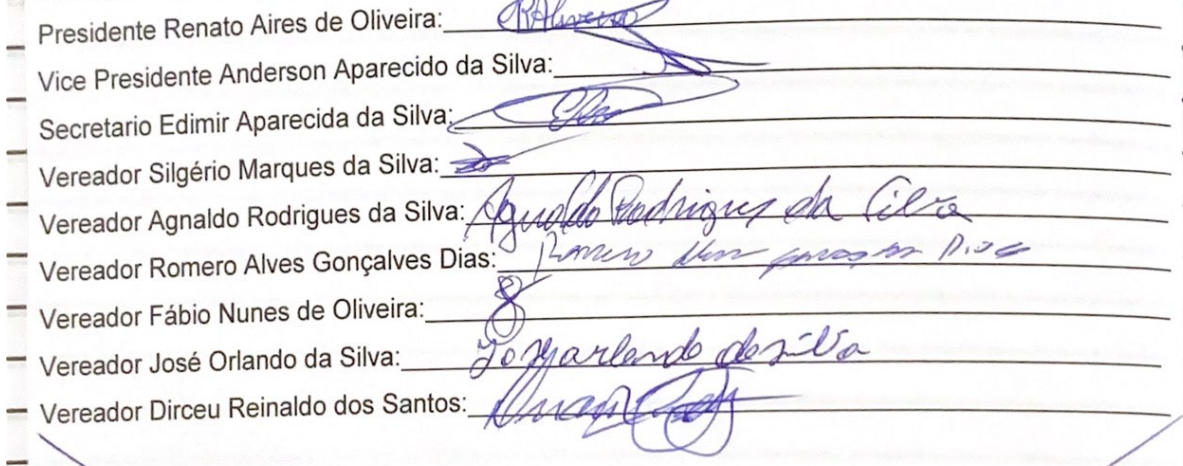 Presidente Renato Aires de Oliveira:
Vice Presidente Anderson Aparecido da Silva:
Secretario Edimir Aparecida da Silva:
Vereador Silgério Marques da Silva:
Vereador Agnaldo Rodrigues da Silva: Agnaldo Rodrigues da Silva
Vereador Romero Alves Gonçalves Dias: Romero Dias
Vereador Fábio Nunes de Oliveira:
Vereador José Orlando da Silva:
Vereador Dirceu Reinaldo dos Santos: